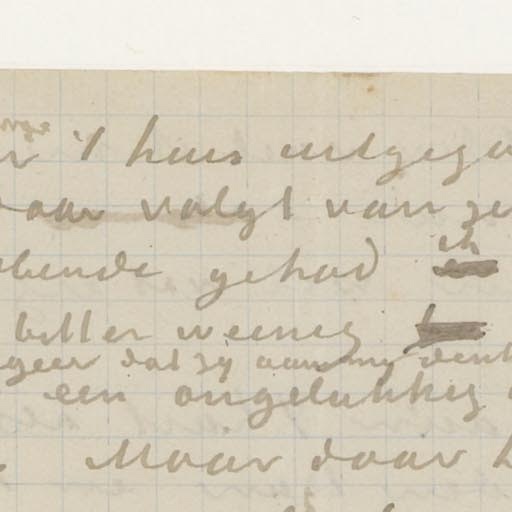 't huis uitgega
daar volgt van ze
bende gehad ik
bitter weinig
geer dat zy aan my denk
een ongelukkig
Maar daar